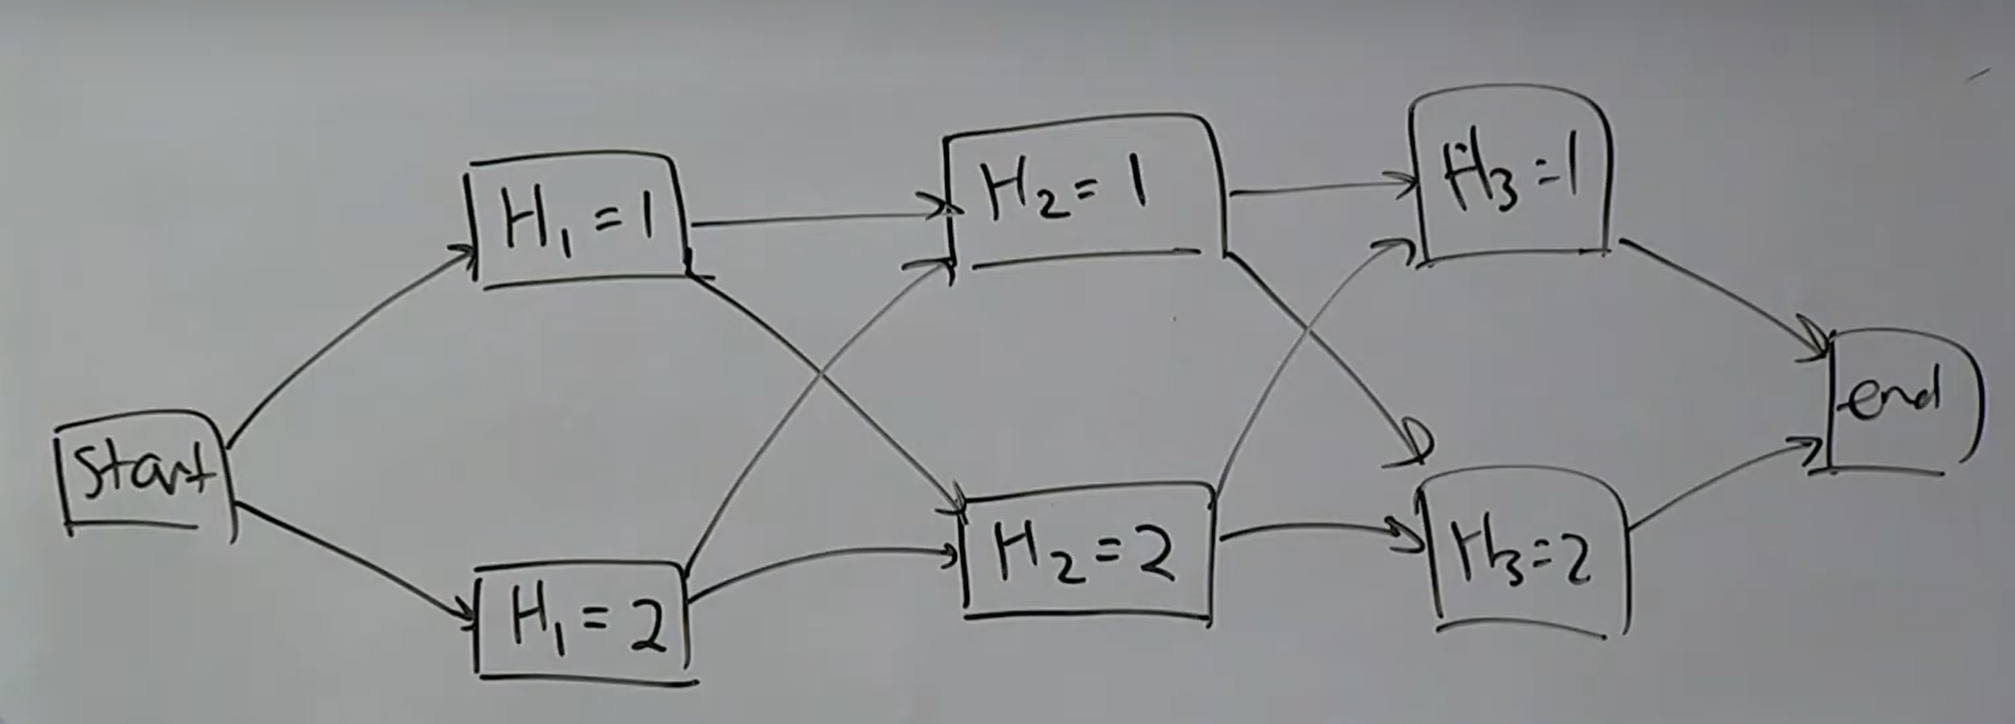 start
H₁ = 1
H₁ = 2
H₂ = 1
H₂ = 2
H₃ = 1
H₃ = 2
end